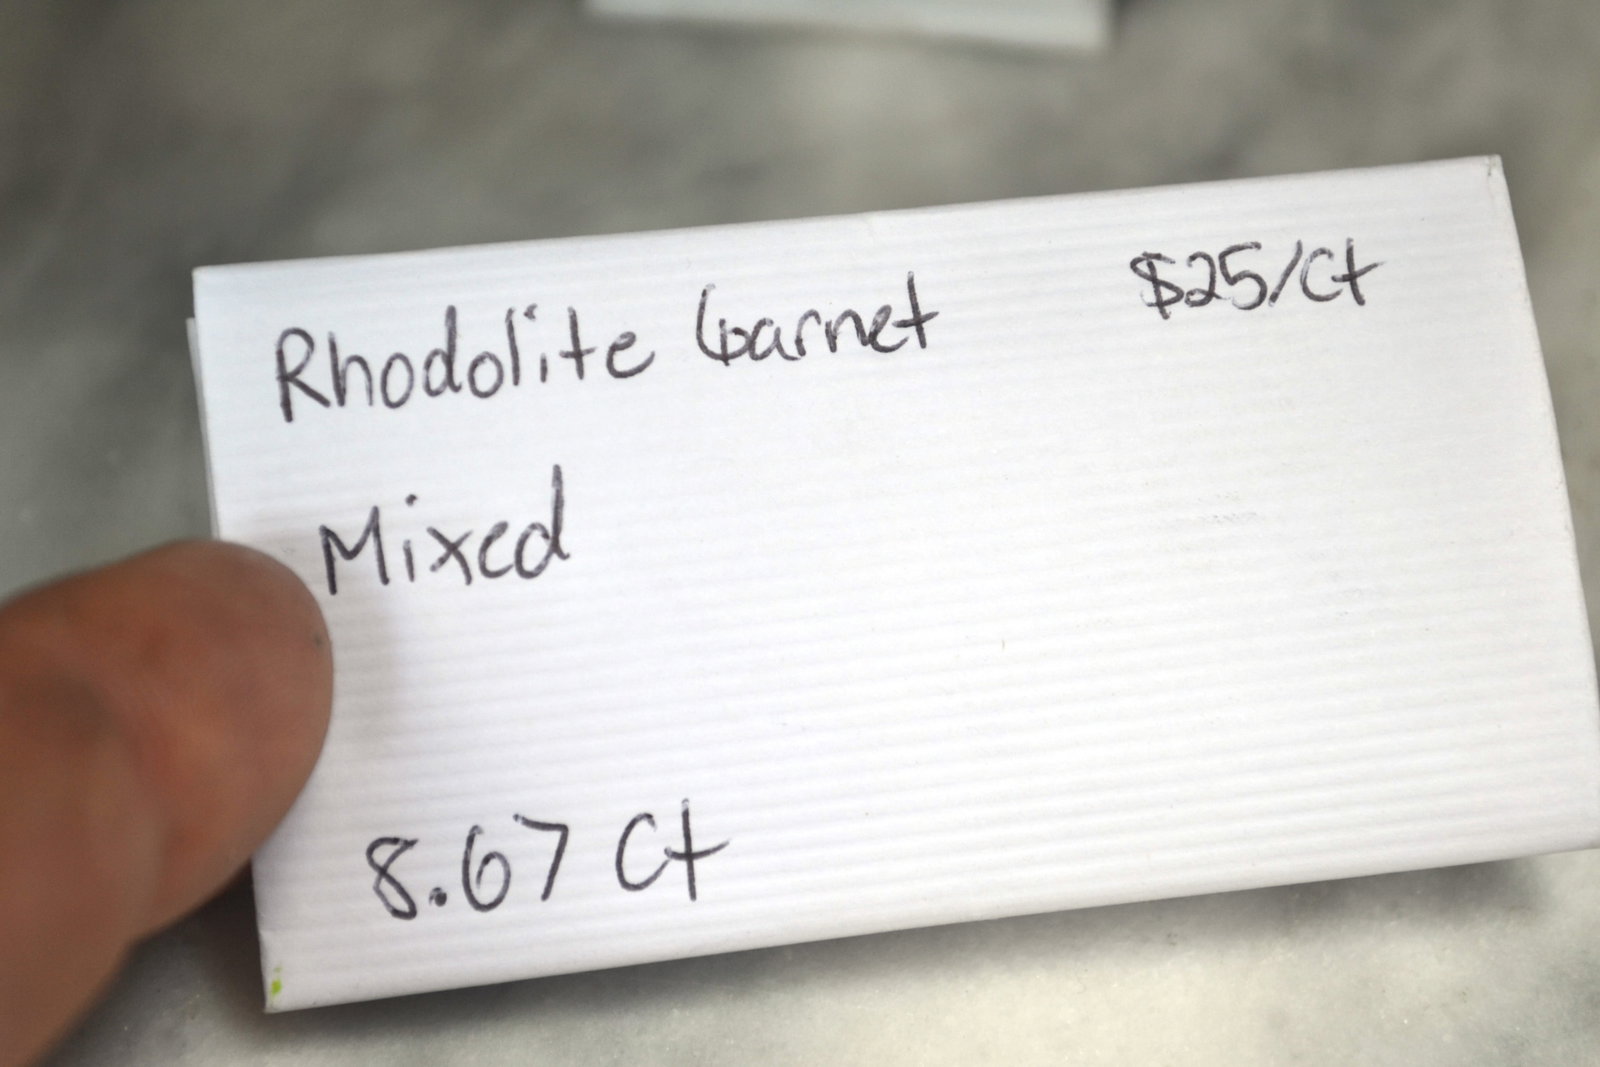 Rhodolite Garnet $25/Ct
Mixed
8.67 Ct